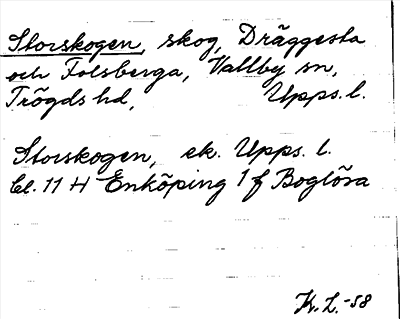 Storskogen, skog, Dräggesta
och Folsberga, Vallby sn,
Trögds hd, Upps. l.
Storskogen, ek. Upps. l.
bl. 11 H Enköping 1 f Boglösa
K. L. -58